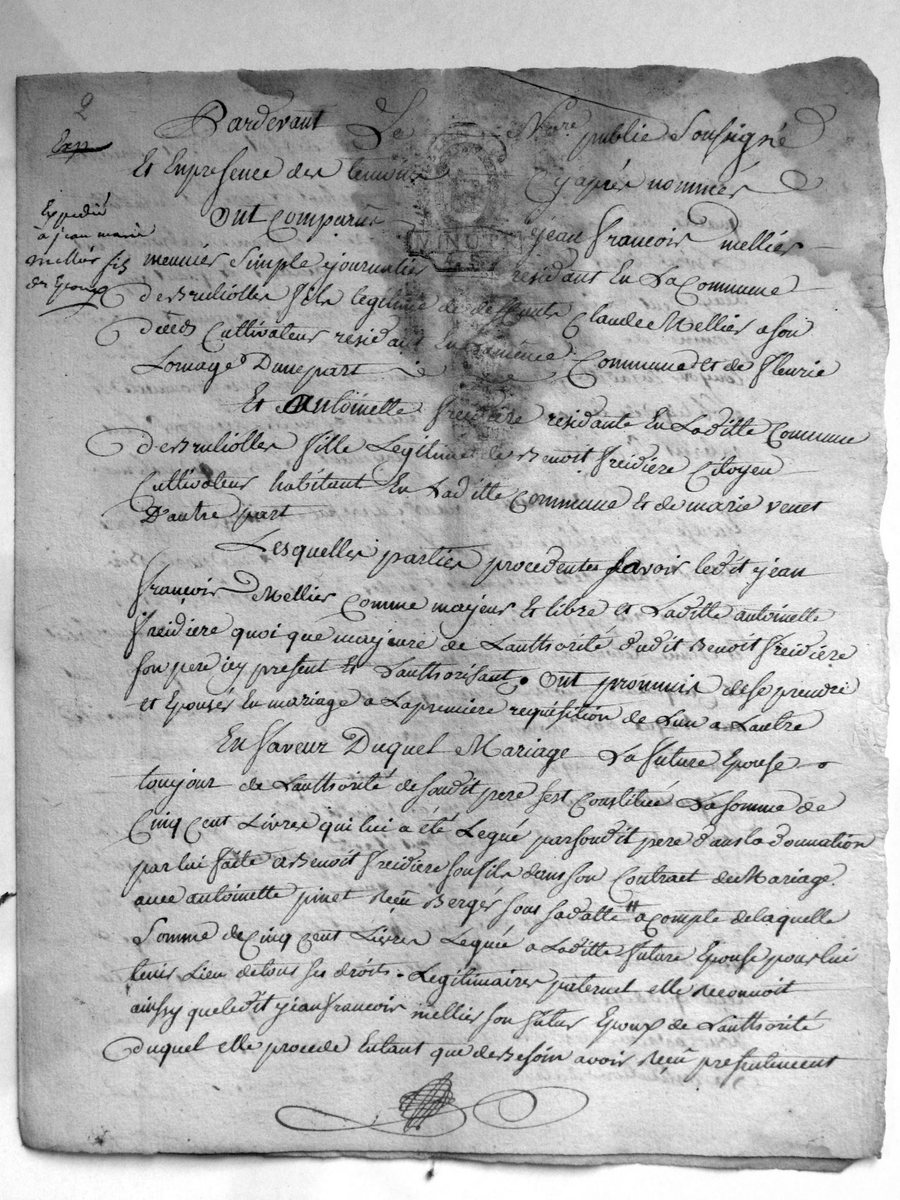 2
Exp
Pardevant Le Nre publie Soussigné
Et Enpresence des temoins cy après nommés
Expedié
à jean marie
mellier fils
des Epoux
ont Comparus jean francois mellier
meunier Simple journalier residant En La Commune
de Bruliolles fils legitime de deffunt Claude Mellier a son
deceds Cultivateur residant En la même Commune et de fleurie
Lomage Dune part
Et Antoinette freidiere residante En Laditte Commune
de Bruliolles fille Legitime de Benoit freidiere Citoyen
Cultivateur habitant En Laditte Commune et de marie venet
D'autre part
Lesquelles parties procedentes Savoir ledit jean
françois Mellier Comme majeur Et libre et Laditte antoinette
freidiere quoi que majeure de Lauthorité dudit Benoit freidiere
son pere icy present Et Lauthorisant, ont promis de se prendre
et Epouser En mariage a La premiere requisition de Lun a Lautre
En faveur Duquel Mariage La future Epouse
toujour de Lauthorité de sondit pere sest Constitué La somme de
Cinq Cent Livres qui lui a été Legué par sondit pere dans la donnation
par lui faite a Benoit freidiere son fils dans son Contract de Mariage
avec antoinette pinet Reçu Berger sous sa datte " a compte de laquelle
Somme de Cinq Cent Livres Leguée a Laditte future Epouse pour lui
tenir Lieu de tous ses droits Legitimaires paternel elle Reconnoit
ainsy que ledit jean francois mellier son futur Epoux de Lauthorité
Duquel elle procede Entant que de Besoin avoir Reçu presentement
NINOTE